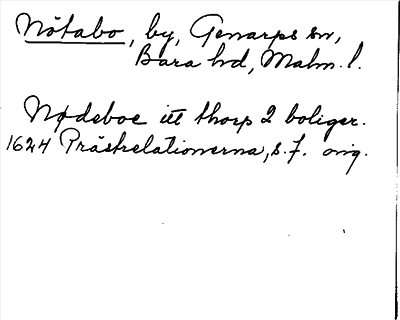 Nötabo, by, Genarps sn,
Bara hd, Malm. l.
Nødeboe itt thorp 2 boliger.
1624 Prästrelationerna, s. 7. orig.